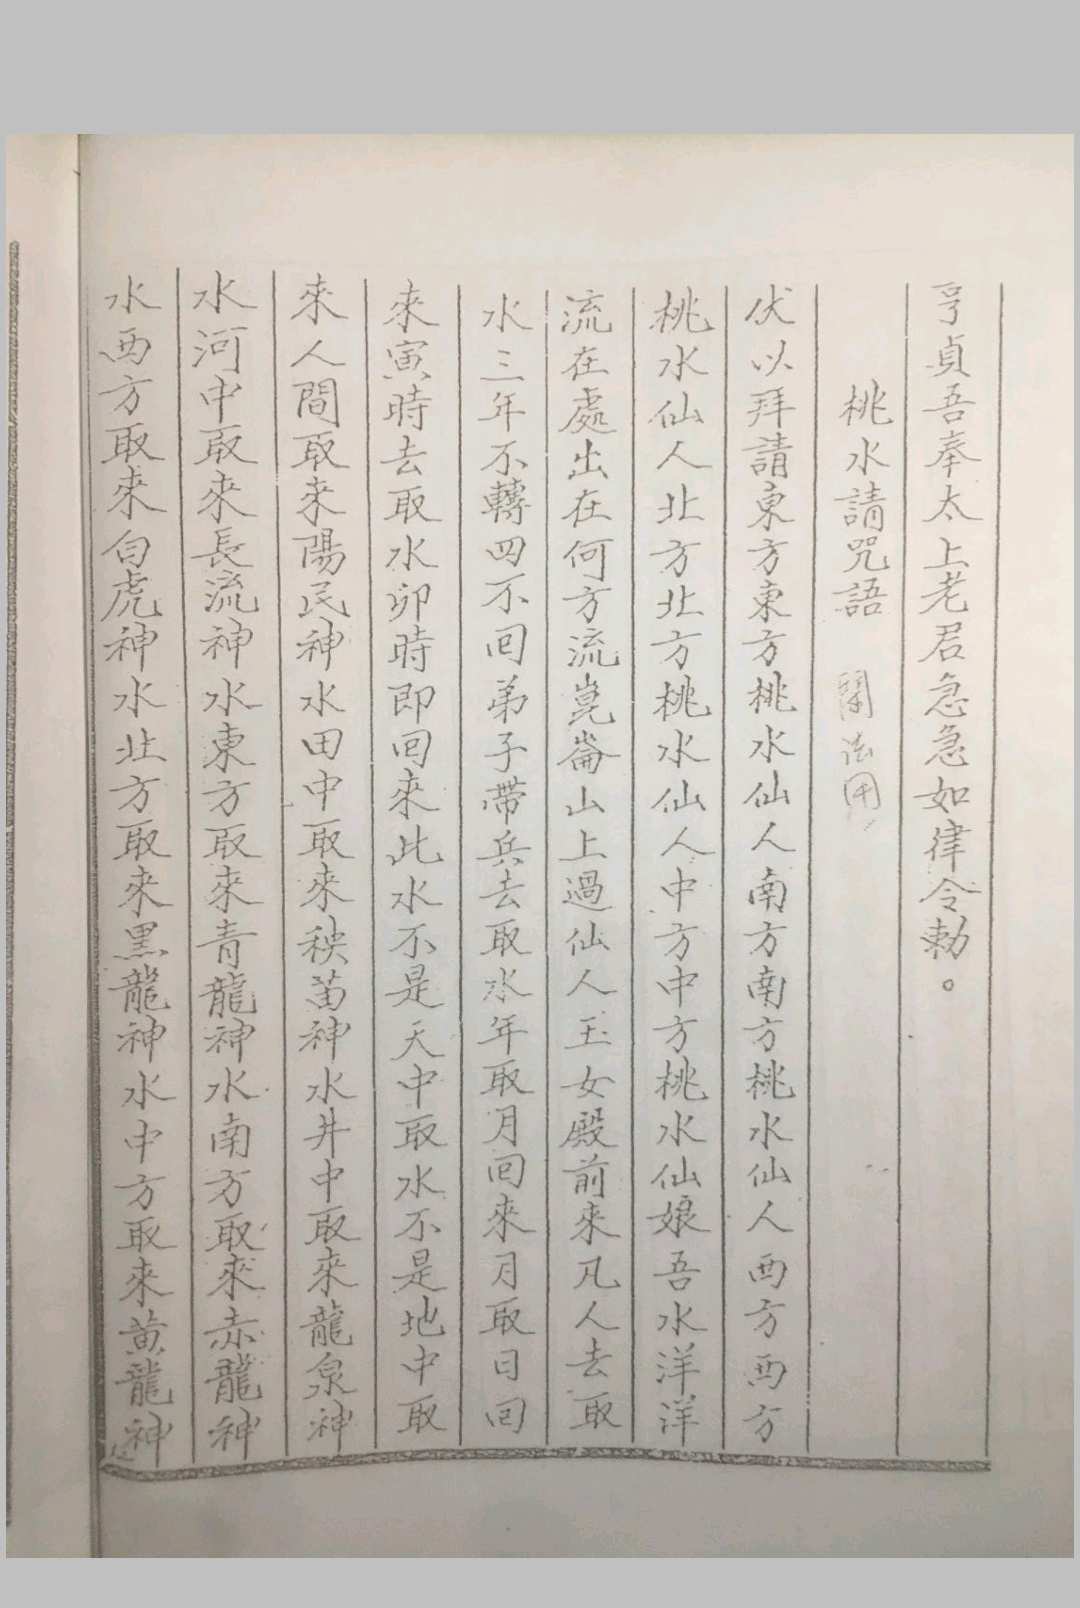 亨貞吾奉太上老君急急如律令勅。
桃水請咒語 法用
伏以拜請東方東方桃水仙人南方南方桃水仙人西方西方
桃水仙人北方北方桃水仙人中方中方桃水仙娘吾水洋洋
流在處出在何方流崑崙山上過仙人玉女殿前來凡人去取
水三年不轉四不回弟子帶兵去取水年取月回來月取日回
來寅時去取水卯時即回來此水不是天中取水不是地中取
來人間取來陽民神水田中取來秧苗神水井中取來龍泉神
水河中取來長流神水東方取來青龍神水南方取來赤龍神
水西方取來白虎神水北方取來黑龍神水中方取來黄龍神